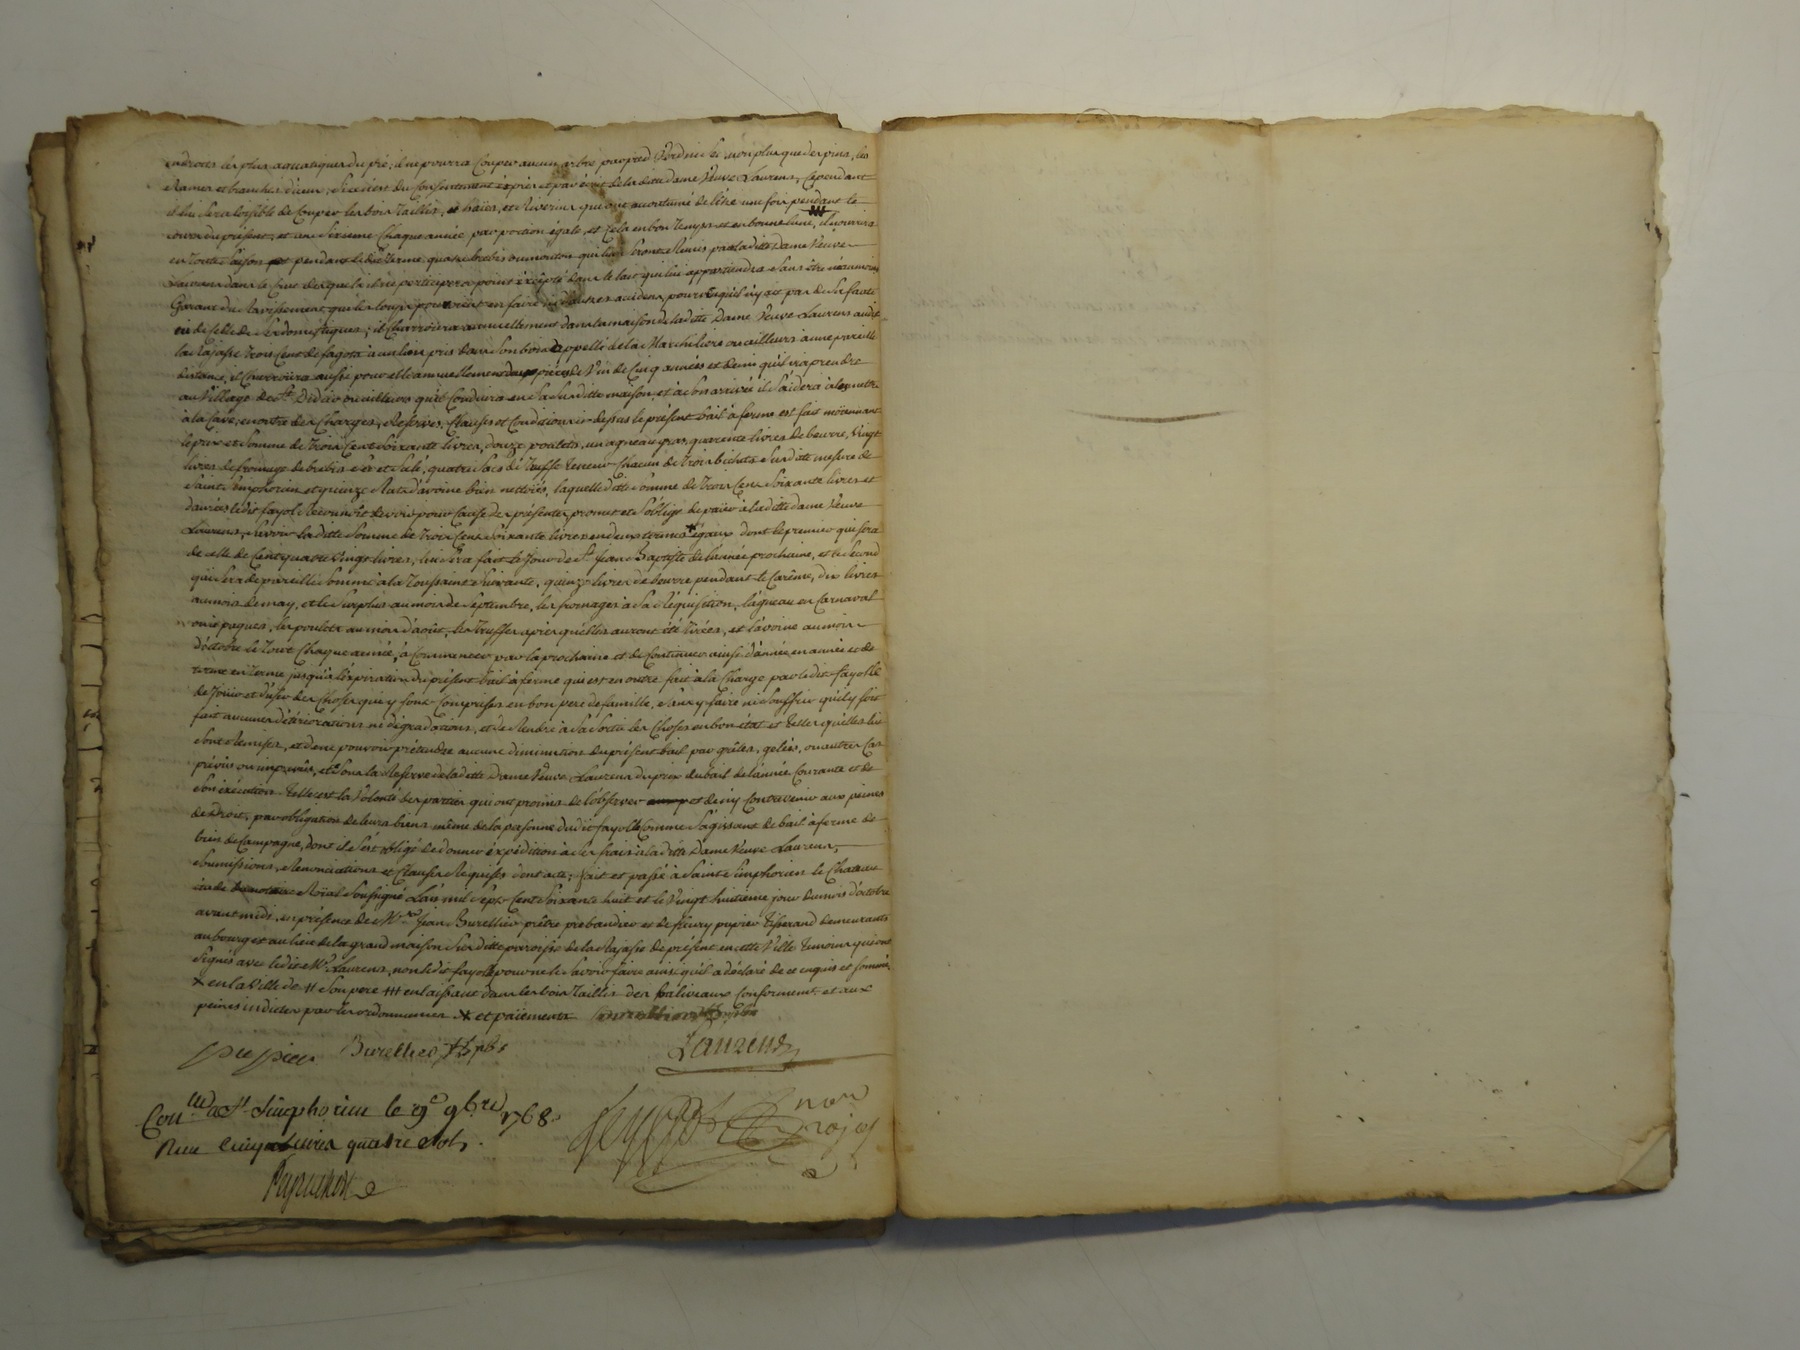 endroits les plus aquatiques du pré; il ne pourra Couper aucun arbre par pied Verd ni sec, non plus que des pins, les
Rames et branches d'iceux, si ce n'est du Consentement exprès et par écrit de la ditte dame Veuve Laurens, Cependant
il lui sera loisible de Couper les bois Taillis, haïes, et Riverins qui ont accoutumé de l'être une fois pendant le
cours du présent, et un sixieme Chaque année par portion égale, et Cela en bon Temps et en bonne lune, il
en Toutte saison pendant le dit Terme quatre brebis ou mouton qui lui seront Remis par la ditte Dame Veuve
Laurens dans le Cruc desquels il ne participera point éxcépté dans le lait qui lui appartiendra sans être néanmoins
Garant du Ravissement que les loups pourroient en faire ni d'autres accidens, pourvu qu'il n'y ait pas de sa faute
ni de Celle de ses domestiques; il Charroiera annuellement dans la maison de la ditte Dame Veuve Laurens audit
la Rajasse Trois Cent de fagots à un lien pris dans son bois appellé de la Marchiliere ou ailleurs à une pareille
distance, il Charroiera aussi pour elle annuellement pièces de Vin de Cinq années et demi qu'il ira prendre
au Village de St Didier ou ailleurs qu'il Conduira en sa susditte maison, et à son arrivée il s'aidera à les mettre
à la Cave, en outre des Charges, Réserves, Clauses et Conditions ci dessus le présent bail à ferme est fait moiennant
le prix et somme de Trois Cent Soixante livres, douze poulets, un agneau gras, quarente livres de beurre, Vingt
livres de fromage de brebis sec et salé, quatre sacs de Truffe Teneur Chacun de Trois bichets susditte mesure de
Saint Simphorien et quinze Rats d'avoine bien nettoiés, laquelle ditte somme de Trois Cens Soixante livres et
danrées le dit fayolle Reconnoit devoir pour Cause des présentes promet et s'oblige de païer à la ditte dame Veuve
Laurens, savoir la ditte somme de Trois Cent Soixante livres en deux termes égaux dont le premier qui sera
de celle de Cent quatre Vingt livres, lui sera fait le Jour de St Jean Baptiste de l'année prochaine, et le second
qui sera de pareille somme à la Toussaint suivante, quinze livres de beurre pendant le Carême, dix livres
au mois de may, et le surplus au mois de septembre, les fromages à sa Réquisition, l'agneau en Carnaval
ou à paques, les poulets au mois d'août, les Truffes après qu'elles auront été Tirées, et l'avoine au mois
d'octobre le Tout Chaque année, à Commencer par la prochaine et de Continuer ainsi d'année en année et de
terme en Terme jusqu'à l'expiration du présent bail à ferme qui est en outre fait à la Charge par le dit fayolle
de Jouir et d'user des Choses qui y sont Comprises en bon pere de famille, sans y faire ni souffrir qu'il y soit
fait aucunes détériorations ni dégradations, et de Rendre à sa sortie les Choses en bon état et Telles qu'elles lui
sont Remises, et de ne pouvoir prétendre aucune diminution du présent bail par grêles, gelées, ou autres Cas
prévus ou imprévus, et sous la Réserve de la ditte Dame Veuve Laurens du prix du bail de l'année Courante et de
son éxécution. Telle est la Volonté des parties qui ont promis de l'observer et de n'y Contrevenir aux peines
de Droit, par obligation de leurs biens même de la personne dudit fayolle Comme s'agissant de bail à ferme de
bien de Campagne, dont il s'est obligé de donner éxpédition à ses frais à la ditte Dame Veuve Laurens,
soumissions, Renonciations et Clauses Réquises dont acte; fait et passé à Saint Simphorien le Chateau
étude du notaire Roïal soussigné L'an mil sept Cent Soixante huit et le Vingt huitieme jour du mois d'octobre
avant midi, en présence de Mre Jean Burellier prêtre prébandier et de fleury pupier Tisserand demeurants
au bourg et au lieu de la grand maison susditte paroisse de la Rajasse de présent en cette Ville Temoins qui ont
signés avec ledit Mr Laurens, non ledit fayolle pour ne le savoir faire ainsi qu'il a déclaré de ce enquis et sommé
X en la Ville de # son pere ### en laissant dans les bois Taillis des baliveaux Conforment et aux
peines indictes par les ordonnances X et paiements
pupier Burellier ptre pbr Laurens
Conlle à St Simphorien le 29e 9bre 1768
Reçu cinq livres quatre sols
not Rojal